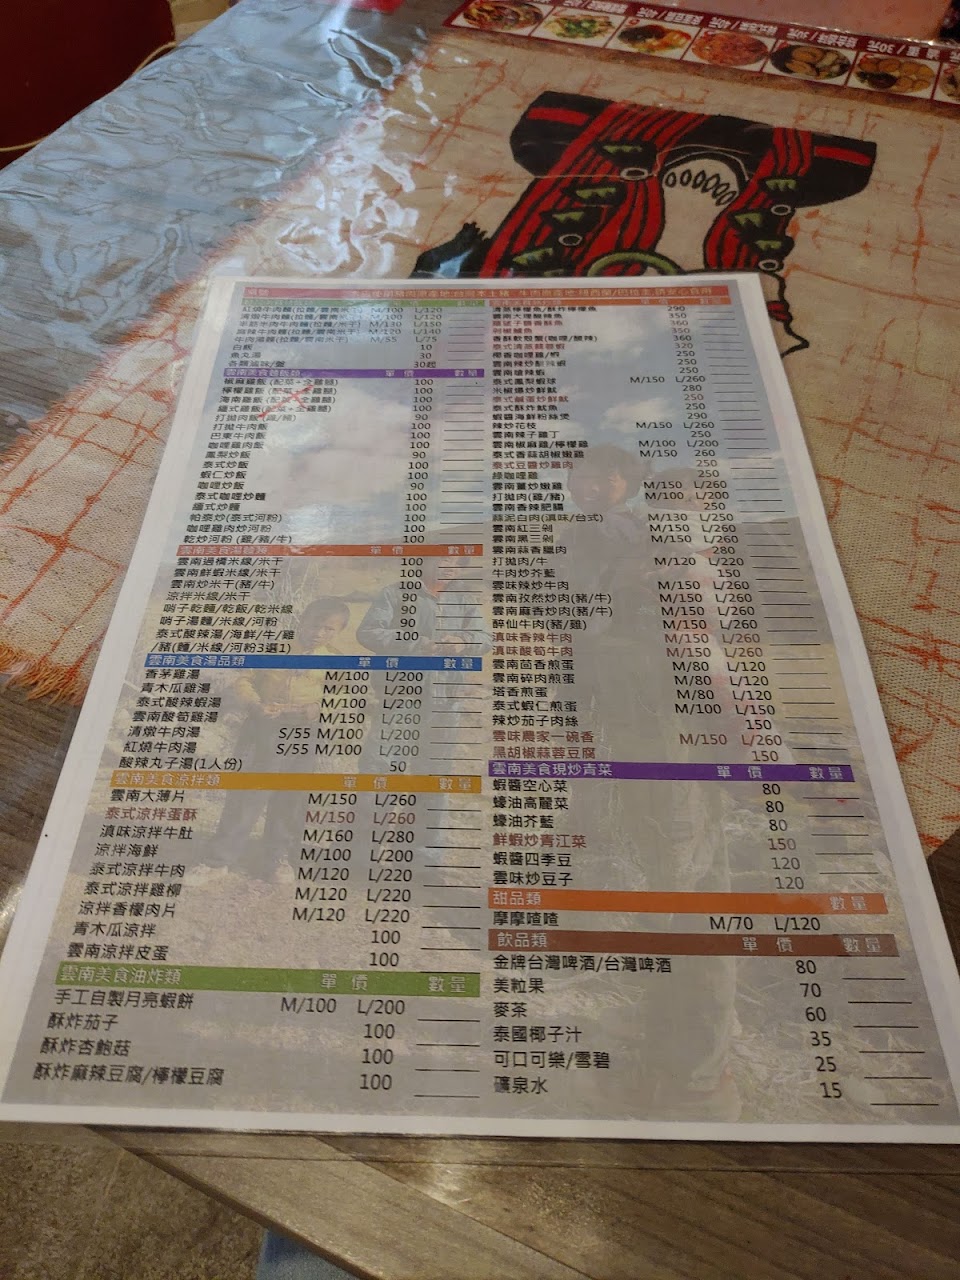 紅燒牛肉麵(拉麵/雲南米干) M/100 L/120
清燉牛肉麵(拉麵/雲南米干) M/100 L/120
M/130 L/150
麻辣牛肉麵(拉麵/雲南米干) M/120 L/140
牛肉湯麵(拉麵/雲南米干) M/55 L/75
白飯 10
魚丸湯 30
各類滷味/盤 30起
雲南美食麵飯類 單價 數量
椒麻雞飯 (配菜+全雞腿) 100
檸檬雞飯 (配菜+全雞腿) 100
海南雞飯 (配菜+全雞腿) 100
緬式雞飯(配菜+全雞腿) 100
打拋肉飯(雞/豬) 90
打拋牛肉飯 100
巴東牛肉飯 100
咖哩雞肉飯 100
鳳梨炒飯 90
泰式炒飯 100
蝦仁炒飯 100
咖哩炒飯 90
泰式咖哩炒麵 100
緬式炒麵 100
帕泰炒(泰式河粉) 100
咖哩雞肉炒河粉 100
乾炒河粉 (雞/豬/牛) 100
雲南美食湯麵類 單價 數量
雲南過橋米線/米干 100
雲南鮮蝦米線/米干 100
雲南炒米干(豬/牛) 100
涼拌米線/米干 90
哨子乾麵/乾飯/乾米線 90
哨子湯麵/米線/河粉 90
泰式酸辣湯/海鮮/牛/雞 100
/豬(麵/米線/河粉3選1)
雲南美食湯品類 單價 數量
香茅雞湯 M/100 L/200
青木瓜雞湯 M/100 L/200
泰式酸辣蝦湯 M/100 L/200
雲南酸筍雞湯 M/150 L/260
清燉牛肉湯 S/55 M/100 L/200
紅燒牛肉湯 S/55 M/100 L/200
酸辣丸子湯(1人份) 50
雲南美食涼拌類 單價 數量
雲南大薄片 M/150 L/260
泰式涼拌蛋酥 M/150 L/260
滇味涼拌牛肚 M/160 L/280
涼拌海鮮 M/100 L/200
泰式涼拌牛肉 M/120 L/220
泰式涼拌雞柳 M/120 L/220
涼拌香檬肉片 M/120 L/220
青木瓜涼拌 100
雲南涼拌皮蛋 100
雲南美食油炸類 單價 數量
手工自製月亮蝦餅 M/100 L/200
酥炸茄子 100
酥炸杏鮑菇 100
酥炸麻辣豆腐/檸檬豆腐 100
清蒸檸檬魚/酥炸檸檬魚 290
雲南大理酸辣魚 350
360
剁椒鱸魚 350
香酥軟殼蟹(咖哩/酸辣) 360
320
椰香咖哩雞/蝦 250
250
雲南香辣蝦 250
泰式鳳梨蝦球 M/150 L/260
米椒爆炒鮮魷 280
泰式鹹蛋炒鮮魷 250
泰式酥炸魷魚 250
蝦醬海鮮粉絲煲 290
辣炒花枝 M/150 L/260
雲南辣子雞丁 250
雲南椒麻雞/檸檬雞 M/100 L/200
泰式香蒜胡椒嫩雞 M/150 260
泰式豆醬炒雞肉 250
綠咖哩雞 250
雲南薑炒嫩雞 M/150 L/260
打拋肉(雞/豬) M/100 L/200
雲南香辣肥腸 250
蒜泥白肉(滇味/台式) M/130 L/250
雲南紅三剁 M/150 L/260
雲南黑三剁 M/150 L/260
雲南蒜香臘肉 280
打拋肉/牛 M/120 L/220
牛肉炒芥藍 150
雲味辣炒牛肉 M/150 L/260
雲南孜然炒肉(豬/牛) M/150 L/260
雲南麻香炒肉(豬/牛) M/150 L/260
醉仙牛肉(豬/雞) M/150 L/260
滇味香辣牛肉 M/150 L/260
滇味酸筍牛肉 M/150 L/260
雲南茴香煎蛋 M/80 L/120
雲南碎肉煎蛋 M/80 L/120
塔香煎蛋 M/80 L/120
泰式蝦仁煎蛋 M/100 L/150
辣炒茄子肉絲 150
雲味農家一碗香 M/150 L/260
黑胡椒蒜蓉豆腐 150
雲南美食現炒青菜 單價 數量
蝦醬空心菜 80
蠔油高麗菜 80
蠔油芥藍 80
鮮蝦炒青江菜 150
蝦醬四季豆 120
雲味炒豆子 120
甜品類 數量
摩摩喳喳 M/70 L/120
飲品類 單價 數量
金牌台灣啤酒/台灣啤酒 80
美粒果 70
麥茶 60
泰國椰子汁 35
可口可樂/雪碧 25
礦泉水 15